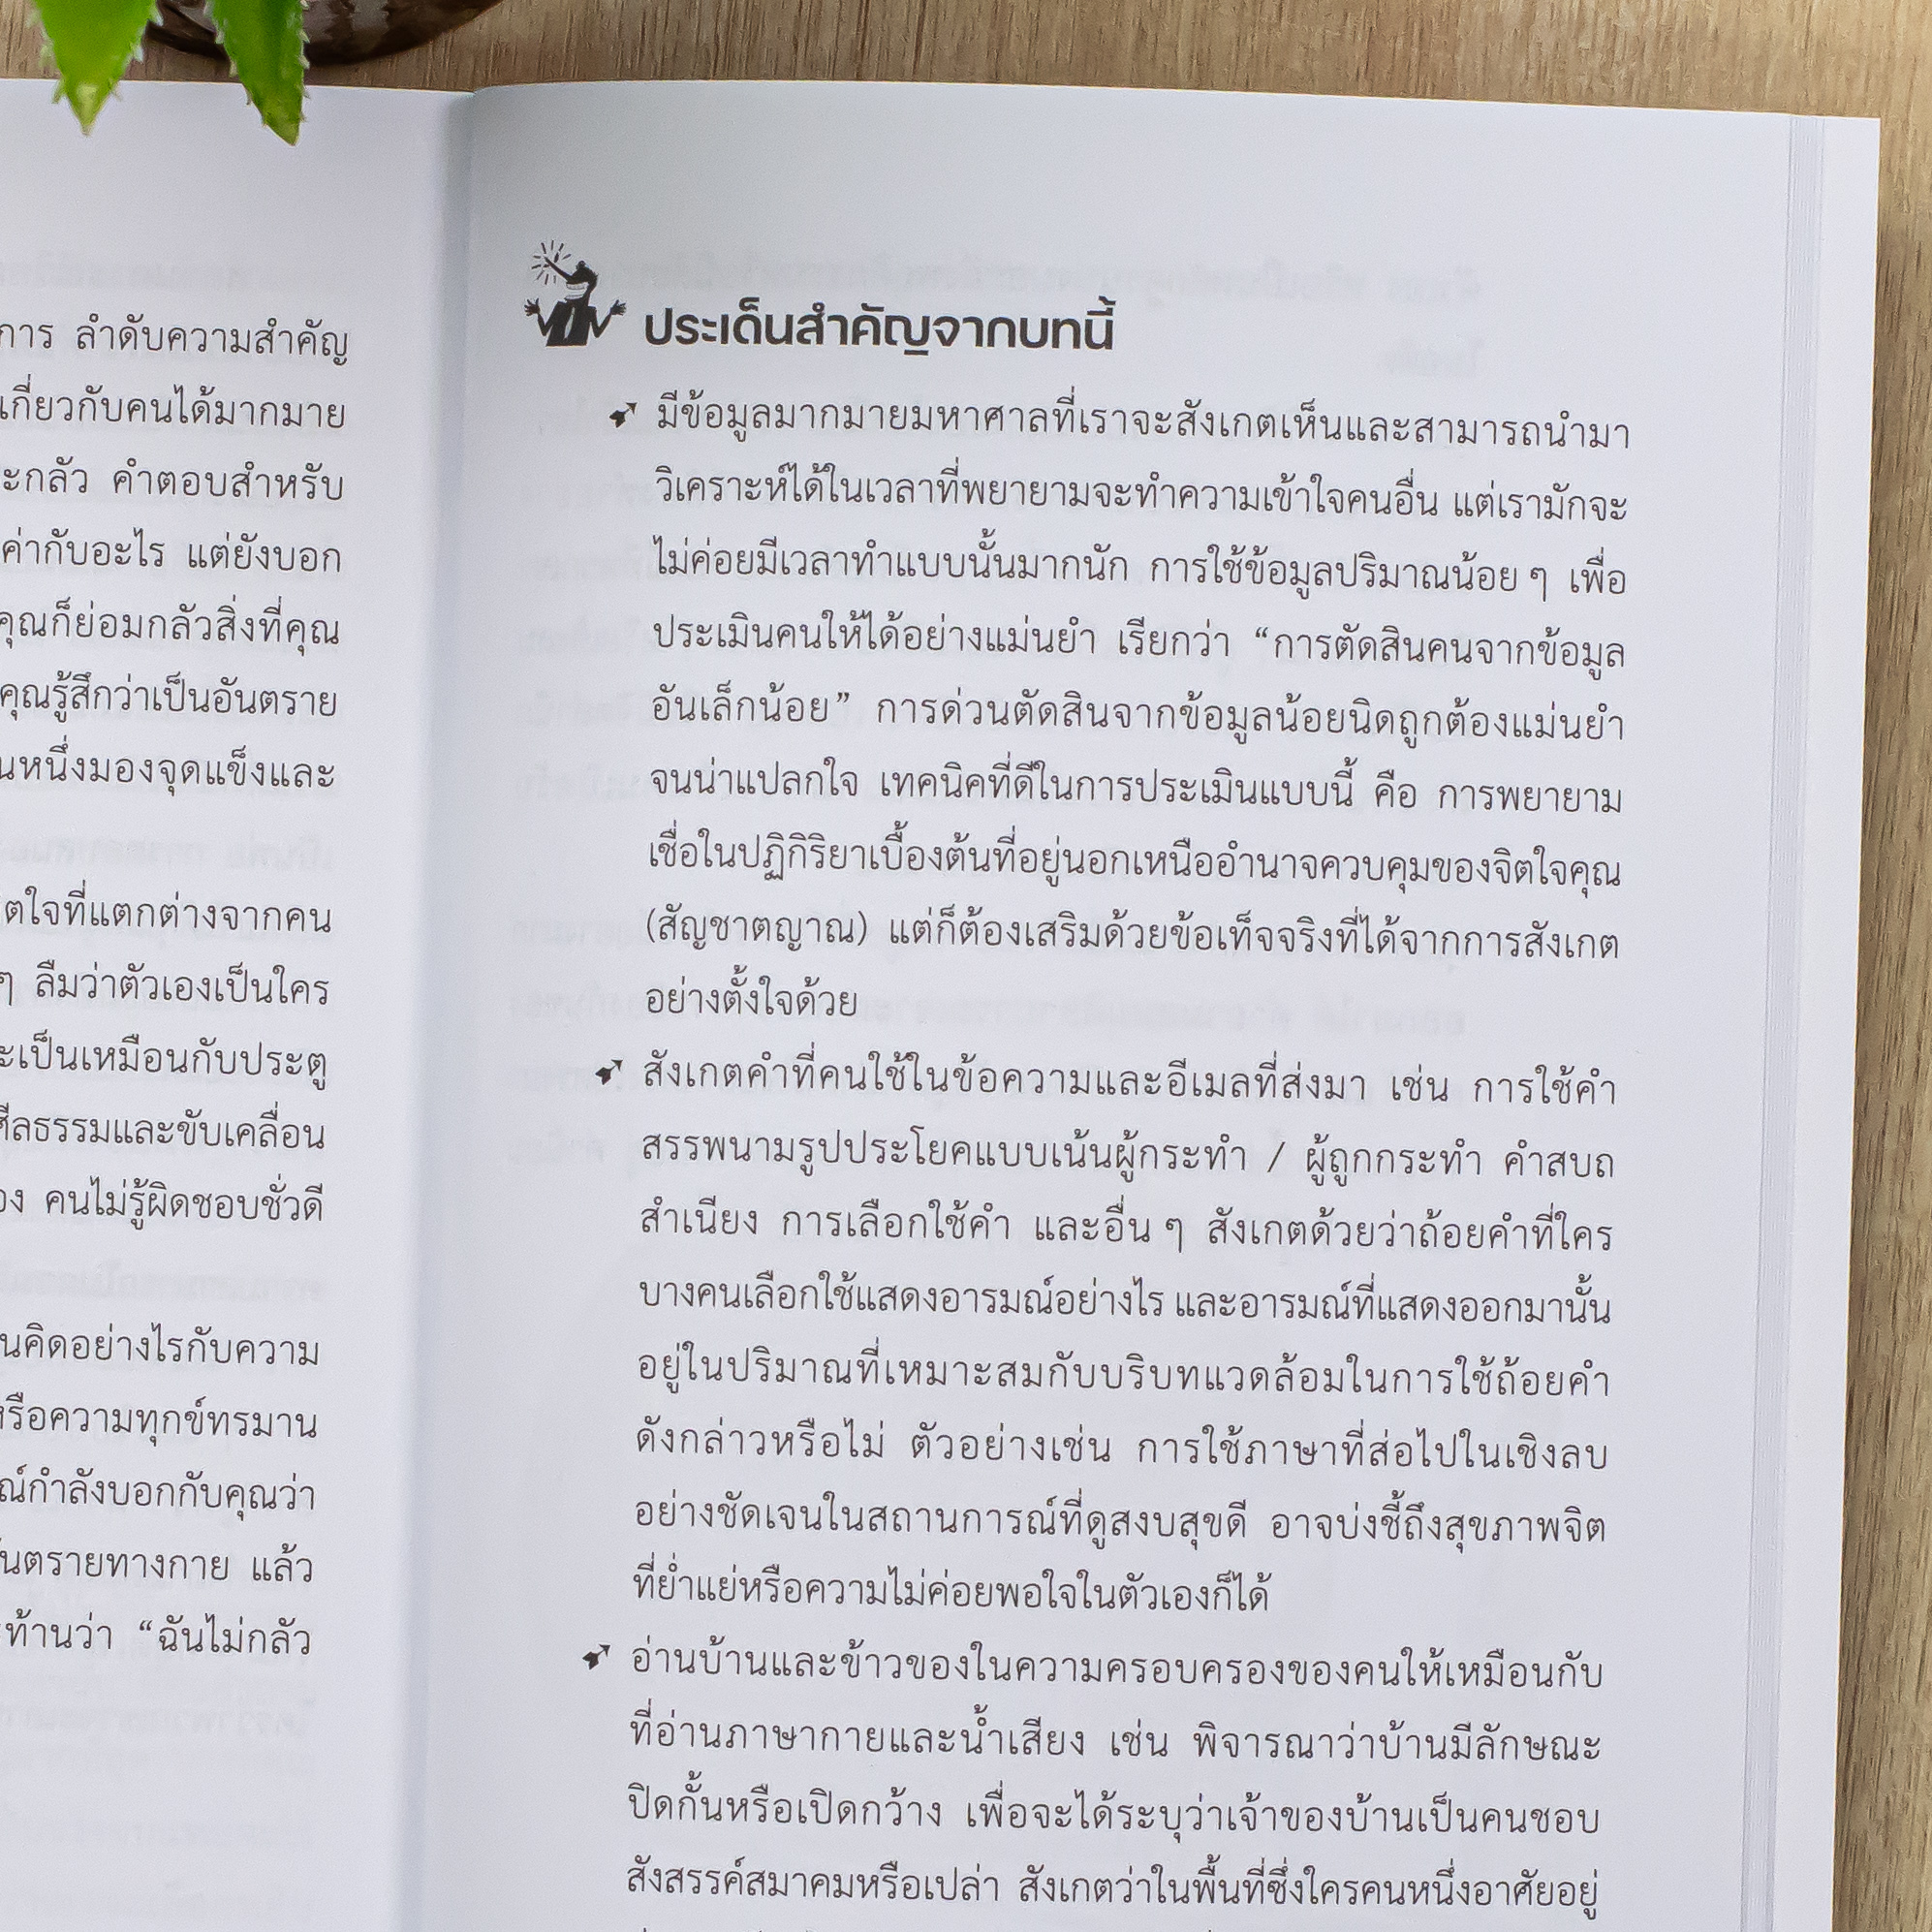 การ ลำดับความสำคัญ
เกี่ยวกับคนได้มากมาย
ะกลัว คำตอบสำหรับ
ค่ากับอะไร แต่ยังบอก
คุณก็ย่อมกลัวสิ่งที่คุณ
คุณรู้สึกว่าเป็นอันตราย
นหนึ่งมองจุดแข็งและ
ตใจที่แตกต่างจากคน
ๆ ลืมว่าตัวเองเป็นใคร
ะเป็นเหมือนกับประตู
ศีลธรรมและขับเคลื่อน
อง คนไม่รู้ผิดชอบชั่วดี
นคิดอย่างไรกับความ
หรือความทุกข์ทรมาน
ณ์กำลังบอกกับคุณว่า
อันตรายทางกาย แล้ว
ท้านว่า “ฉันไม่กลัว
ประเด็นสำคัญจากบทนี้
มีข้อมูลมากมายมหาศาลที่เราจะสังเกตเห็นและสามารถนำมา
วิเคราะห์ได้ในเวลาที่พยายามจะทำความเข้าใจคนอื่น แต่เรามักจะ
ไม่ค่อยมีเวลาทำแบบนั้นมากนัก การใช้ข้อมูลปริมาณน้อย ๆ เพื่อ
ประเมินคนให้ได้อย่างแม่นยำ เรียกว่า “การตัดสินคนจากข้อมูล
อันเล็กน้อย” การด่วนตัดสินจากข้อมูลน้อยนิดถูกต้องแม่นยำ
จนน่าแปลกใจ เทคนิคที่ดีในการประเมินแบบนี้ คือ การพยายาม
เชื่อในปฏิกิริยาเบื้องต้นที่อยู่นอกเหนืออำนาจควบคุมของจิตใจคุณ
(สัญชาตญาณ) แต่ก็ต้องเสริมด้วยข้อเท็จจริงที่ได้จากการสังเกต
อย่างตั้งใจด้วย
สังเกตคำที่คนใช้ในข้อความและอีเมลที่ส่งมา เช่น การใช้คำ
สรรพนามรูปประโยคแบบเน้นผู้กระทำ / ผู้ถูกกระทำ คำสบถ
สำเนียง การเลือกใช้คำ และอื่น ๆ สังเกตด้วยว่าถ้อยคำที่ใคร
บางคนเลือกใช้แสดงอารมณ์อย่างไร และอารมณ์ที่แสดงออกมานั้น
อยู่ในปริมาณที่เหมาะสมกับบริบทแวดล้อมในการใช้ถ้อยคำ
ดังกล่าวหรือไม่ ตัวอย่างเช่น การใช้ภาษาที่ส่อไปในเชิงลบ
อย่างชัดเจนในสถานการณ์ที่ดูสงบสุขดี อาจบ่งชี้ถึงสุขภาพจิต
ที่ย่ำแย่หรือความไม่ค่อยพอใจในตัวเองก็ได้
อ่านบ้านและข้าวของในความครอบครองของคนให้เหมือนกับ
ที่อ่านภาษากายและน้ำเสียง เช่น พิจารณาว่าบ้านมีลักษณะ
ปิดกั้นหรือเปิดกว้าง เพื่อจะได้ระบุว่าเจ้าของบ้านเป็นคนชอบ
สังสรรค์สมาคมหรือเปล่า สังเกตว่าในพื้นที่ซึ่งใครคนหนึ่งอาศัยอยู่